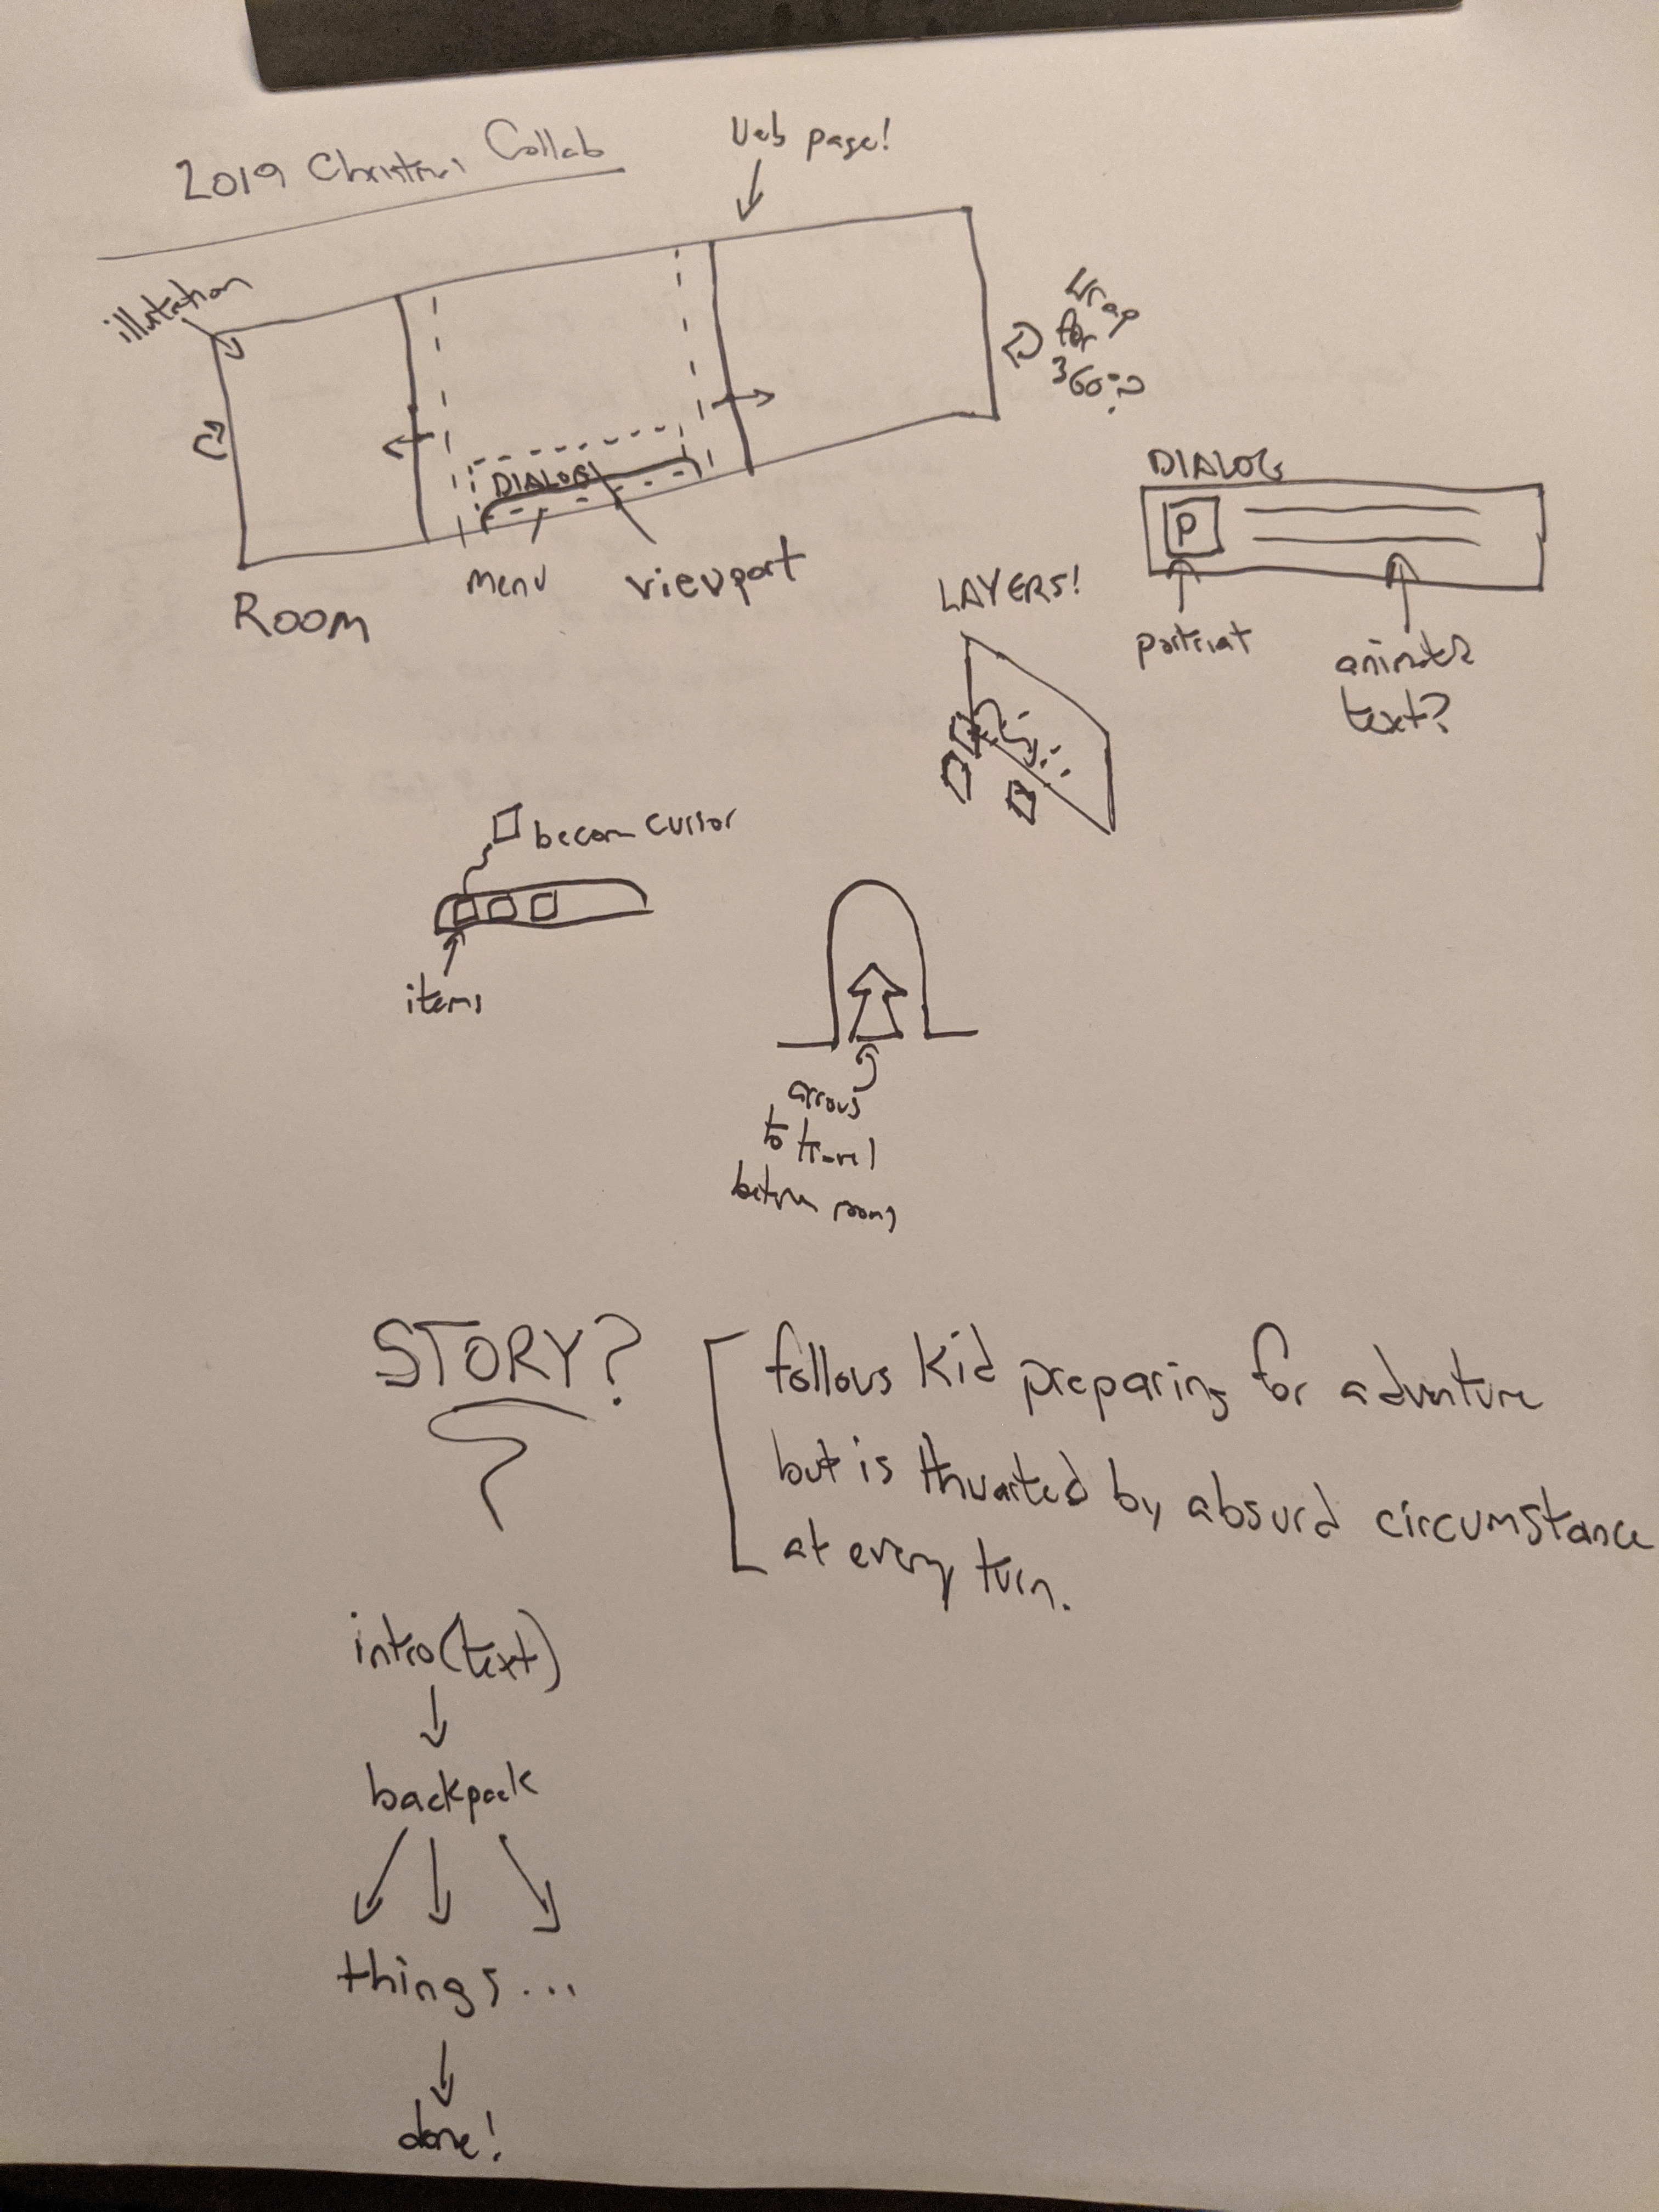 2019 Christmas Collab
Web page!
illustration
Wrap
for
360??
DIALOG
menu
viewport
Room
DIALOG
P
portriat
animated
text?
LAYERS!
become cursor
items
arrows
to travel
between rooms
STORY?
follows kid preparing for adventure
but is thwarted by absurd circumstance
at every turn.
intro (text)
backpack
things...
done!